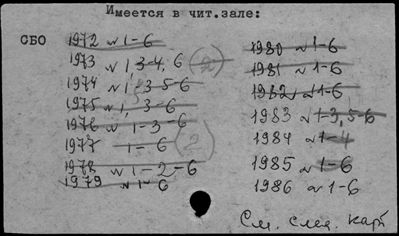 Имеется в чит.зале:
СБО
1972 № 1-6
1973 № 1, 3-4, 6 (2)
1974 № 1, 3-5-6
1975 № 1, 3-6
1976 № 1-3-6
1977 1-6 (2)
1978 № 1-2-6
1979 № 1-6
1980 № 1-6
1981 № 1-6
1982 № 1-6
1983 № 1-3, 5-6
1984 № 1-4
1985 № 1-6
1986 № 1-6
См. след. карт